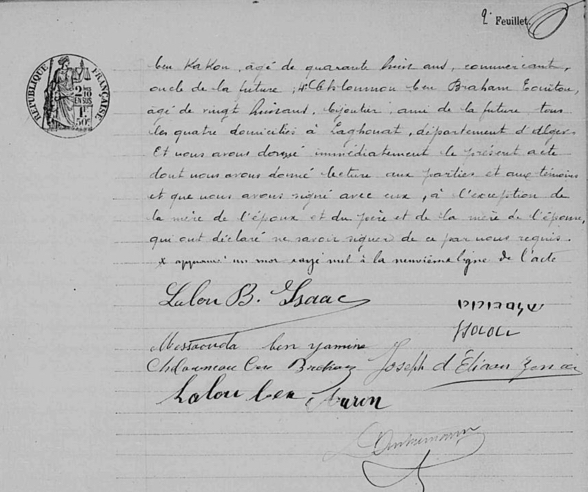 2e Feuillet
RÉPUBLIQUE FRANÇAISE
2/10 EN SUS
1f 50c
ben Kakon, âgé de quarante huit ans, commerçant,
oncle de la future, 4° Chloumou ben Braham
âgé de vingt huit ans, bijoutier, ami de la future tous
les quatre domiciliés à Laghouat, département d'Alger.
Et nous avons dressé immédiatement le présent acte
dont nous avons donné lecture aux parties et aux témoins
et que nous avons signé avec eux, à l'exception de
la mère de l'époux et du père et de la mère de l'épouse,
qui ont déclaré ne savoir signer de ce par nous requis.
un mot rayé nul à la neuvième ligne de l'acte
Lalou B. Isaac
Messaouda ben yamine
ben Joseph d'Eliaou
Lalou ben Aaron